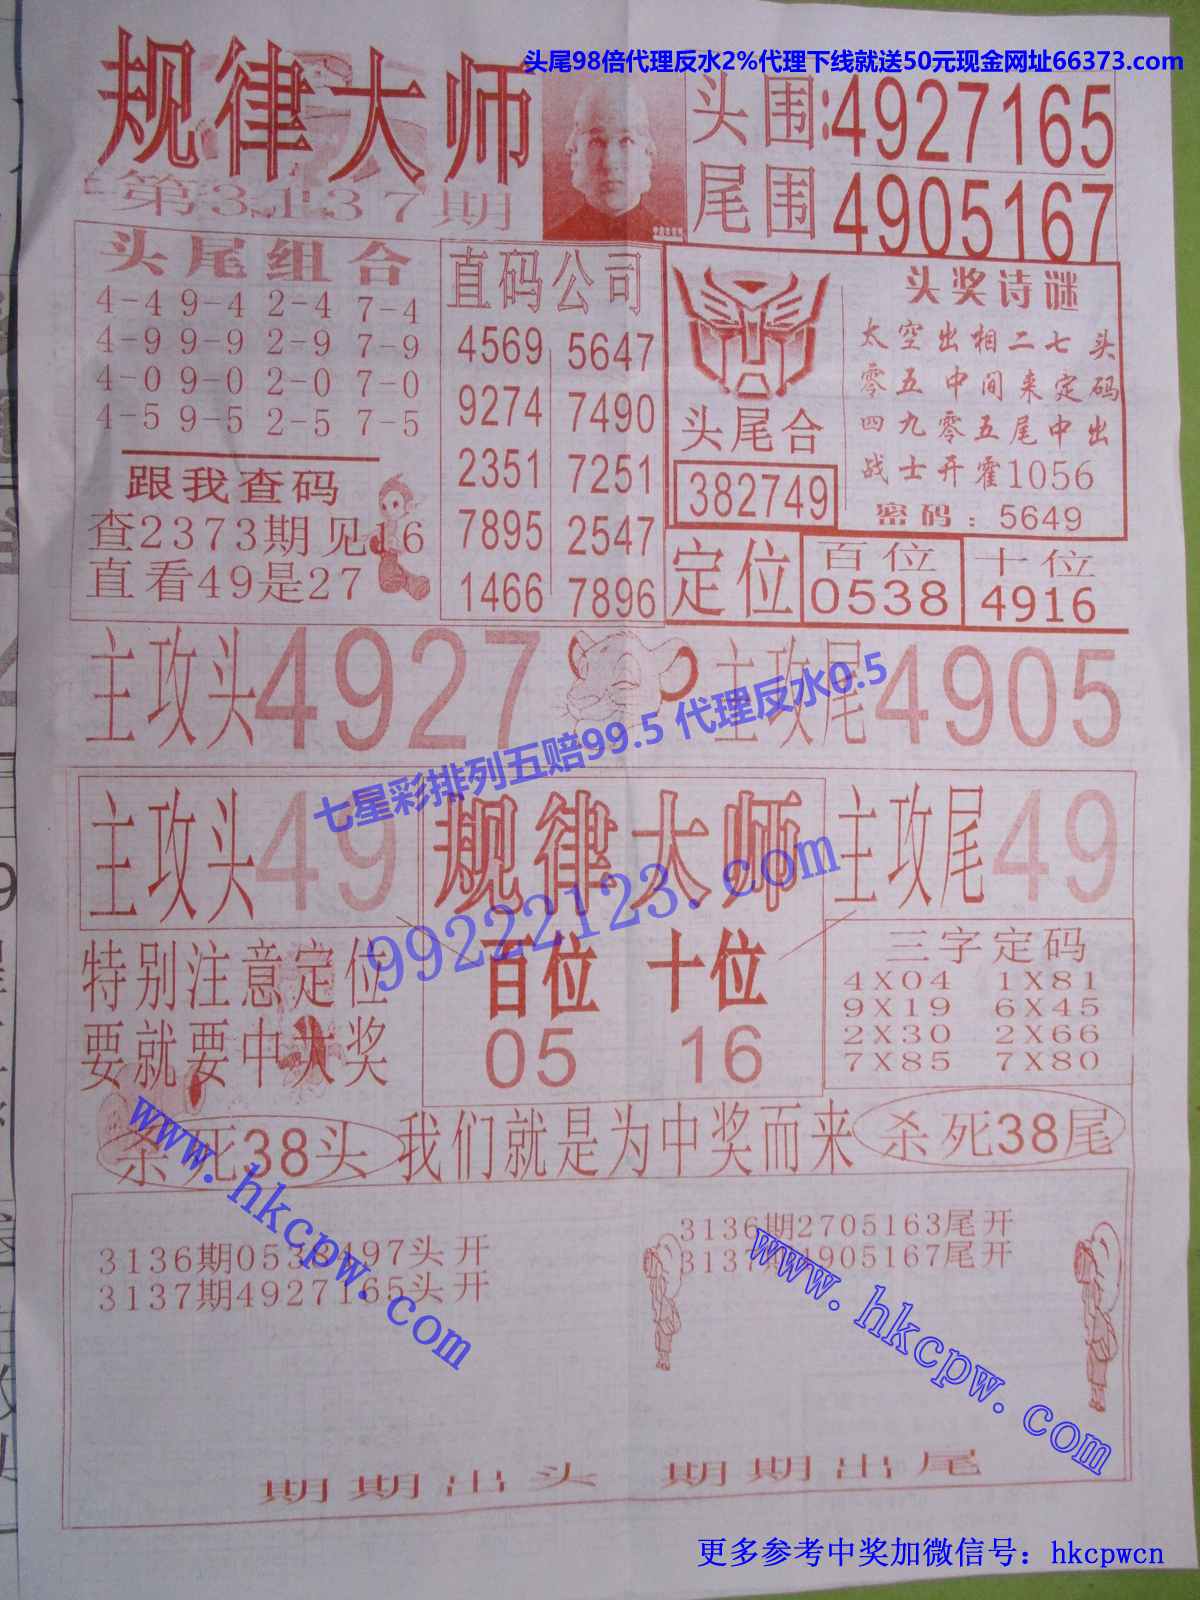 头尾98倍代理反水2%代理下线就送50元现金网址66373.com
规律大师
第3137期
头围:4927165
尾围4905167
头尾组合
4-4 9-4 2-4 7-4
4-9 9-9 2-9 7-9
4-0 9-0 2-0 7-0
4-5 9-5 2-5 7-5
跟我查码
查2373期见16
直看49是27
直码公司
4569 5647
9274 7490
2351 7251
7895 2547
1466 7896
头尾合
382749
头奖诗谜
太空出相二七头
零五中间来定码
四九零五尾中出
战士开霍1056
密码:5649
定位
百位
0538
十位
4916
主攻头4927
主攻尾4905
七星彩排列五赔99.5 代理反水0.5
主攻头49
规律大师
主攻尾49
99222123.com
特别注意定位
要就要中大奖
百位 十位
05 16
三字定码
4X04 1X81
9X19 6X45
2X30 2X66
7X85 7X80
杀死38头
我们就是为中奖而来
杀死38尾
www.hkcpw.com
www.hkcpw.com
3136期2705163尾开
3137期4905167尾开
3137期4927165头开
期期出头 期期出尾
更多参考中奖加微信号：hkcpwcn